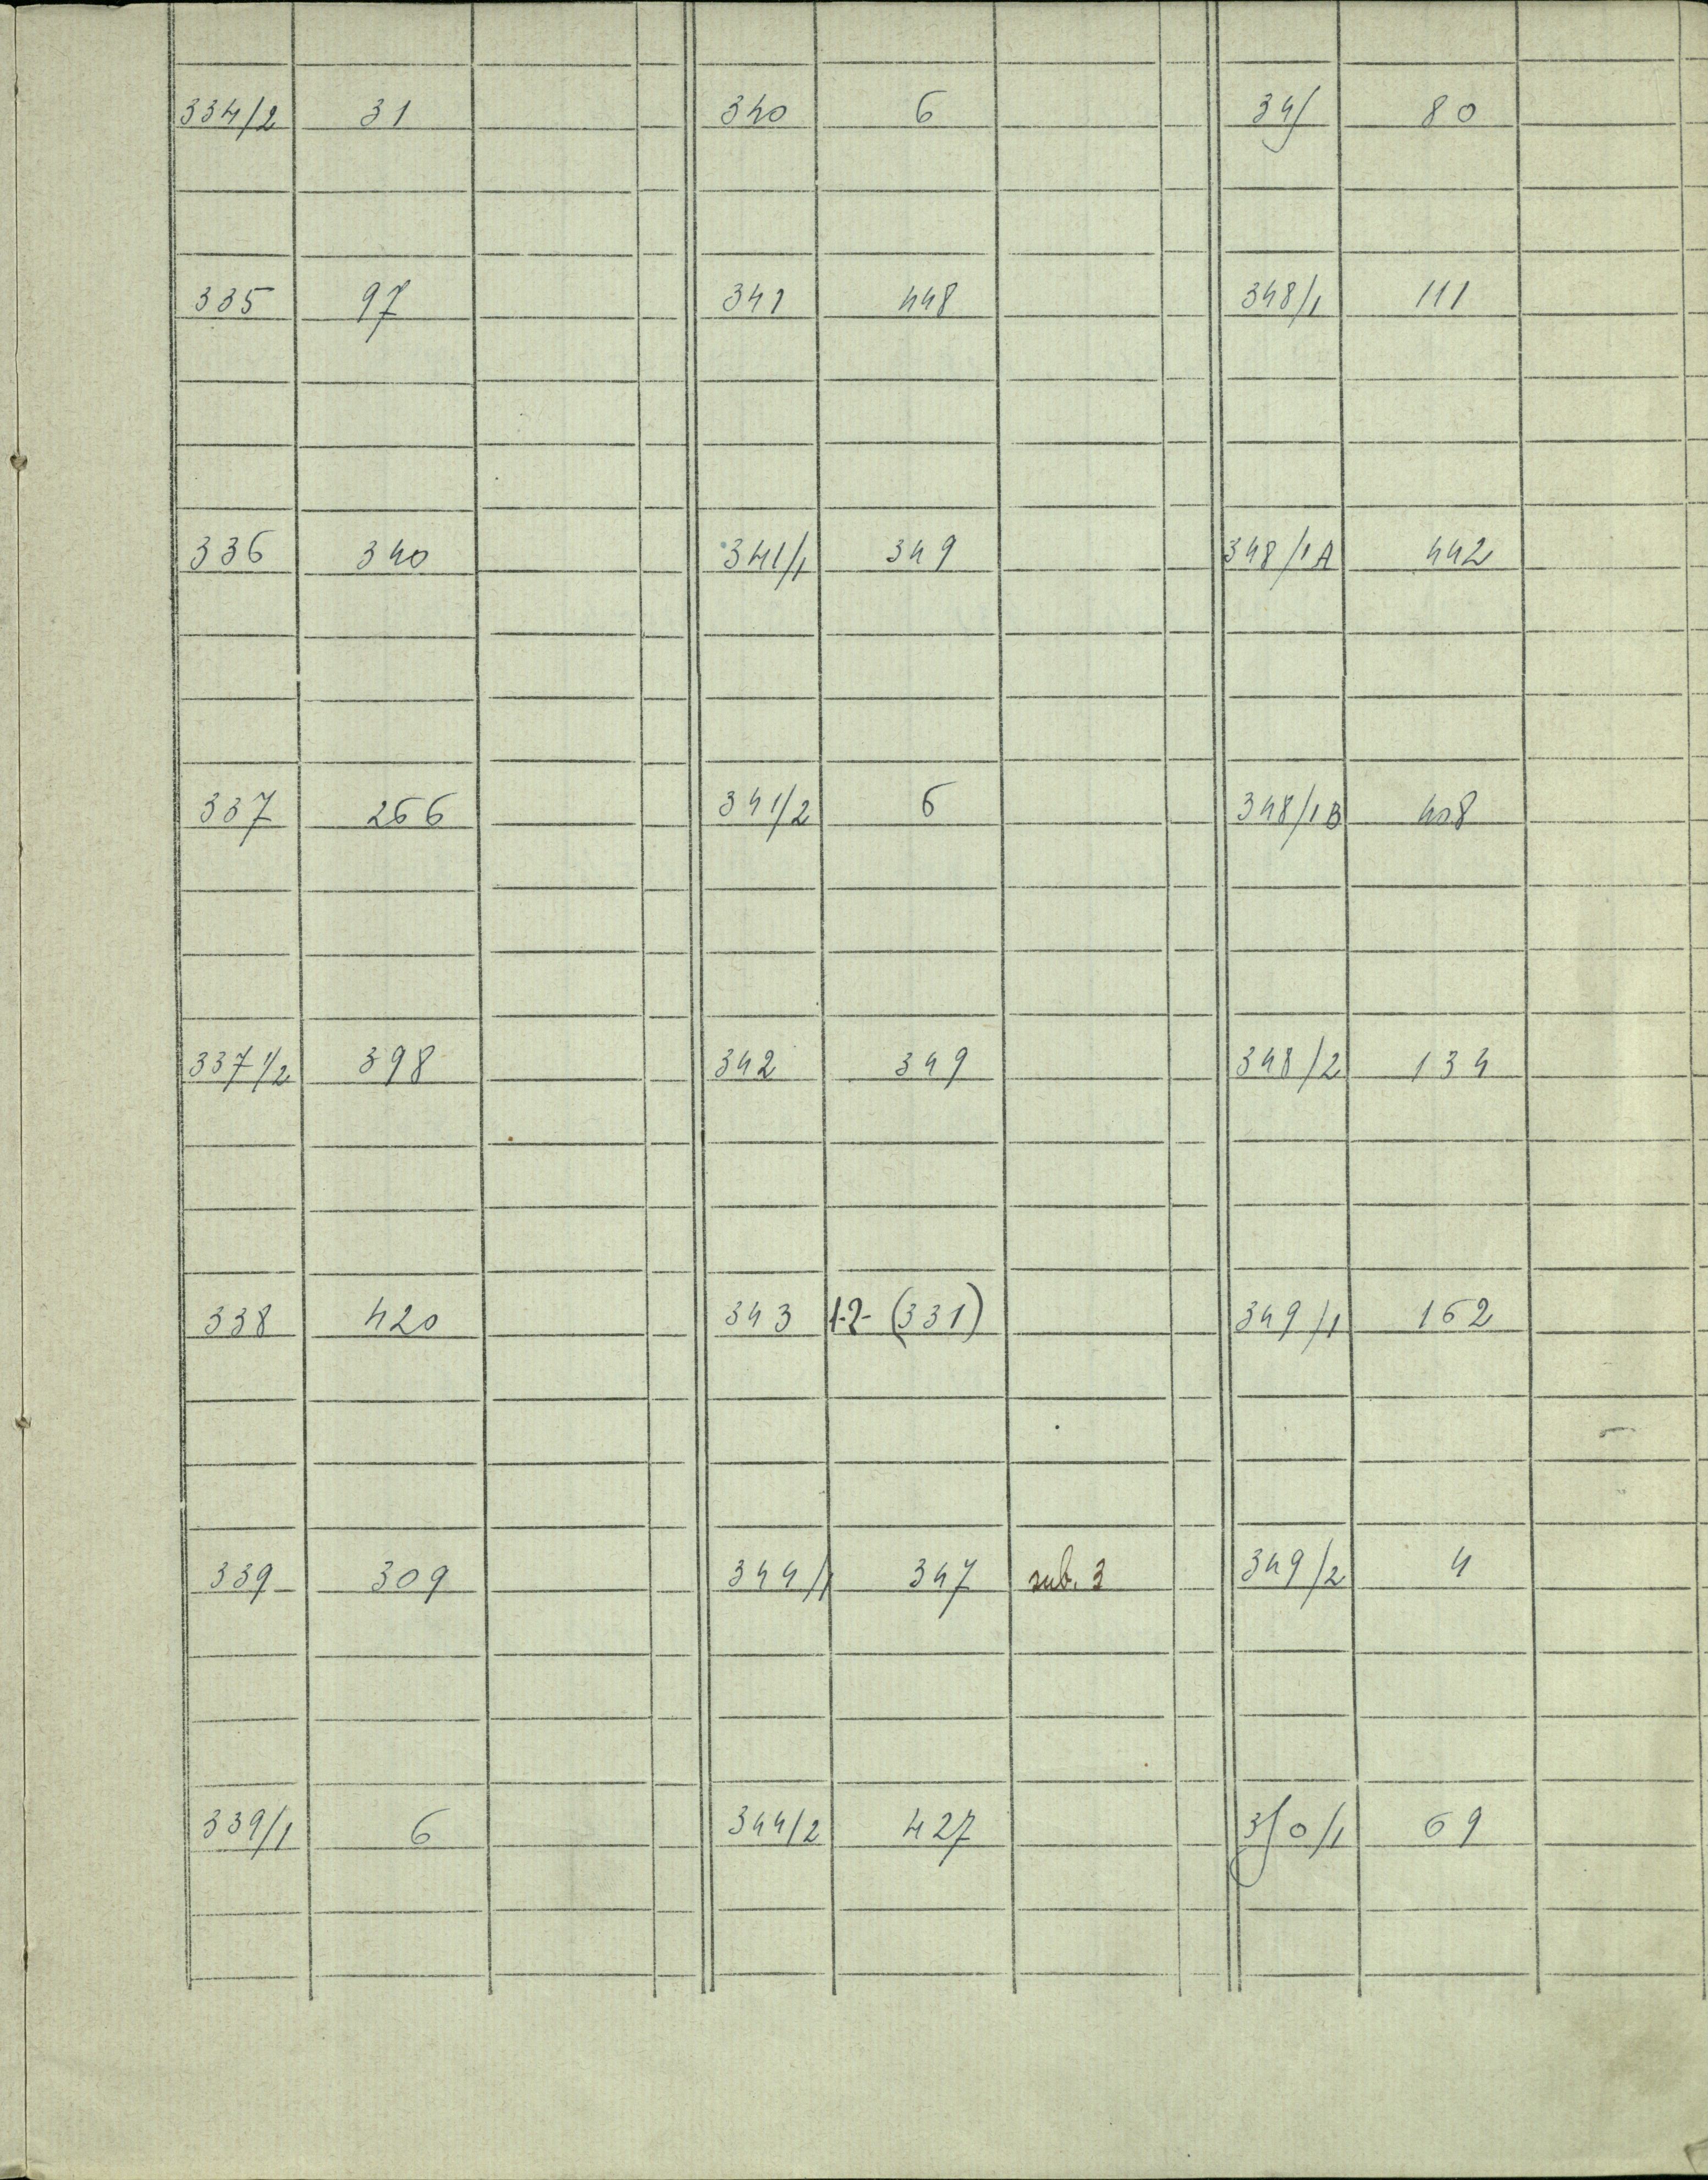 334/2 31
335 97
336 340
337 266
337 1/2 398
338 420
339 309
339/1 6
340 6
341 448
341/1 349
341/2 6
342 349
343 1-2- (331)
344/1 347 sub. 3
344/2 427
345 80
348/1 111
348/1A 442
348/1B 408
348/2 134
349/1 162
349/2 4
350/1 69